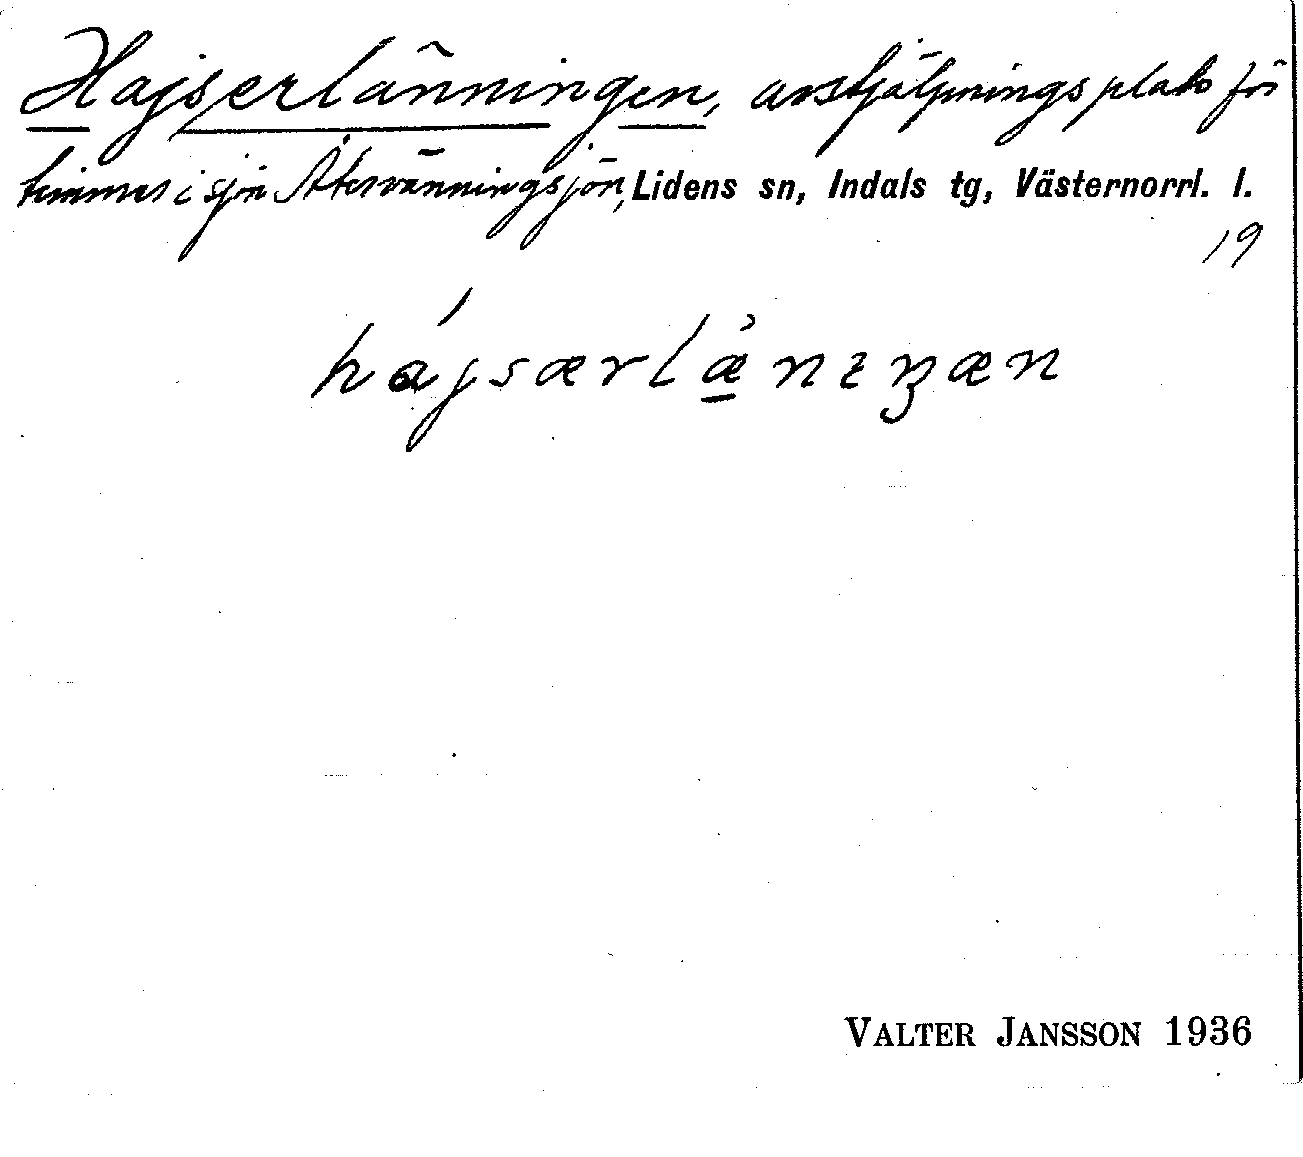 Hajserlänningen, avstjälpningsplats för
timmer i sjön Återvänningsjön, Lidens sn, Indals tg, Västernorrl. l.
19
hájsærlæ̀nɪŋæn
VALTER JANSSON 1936